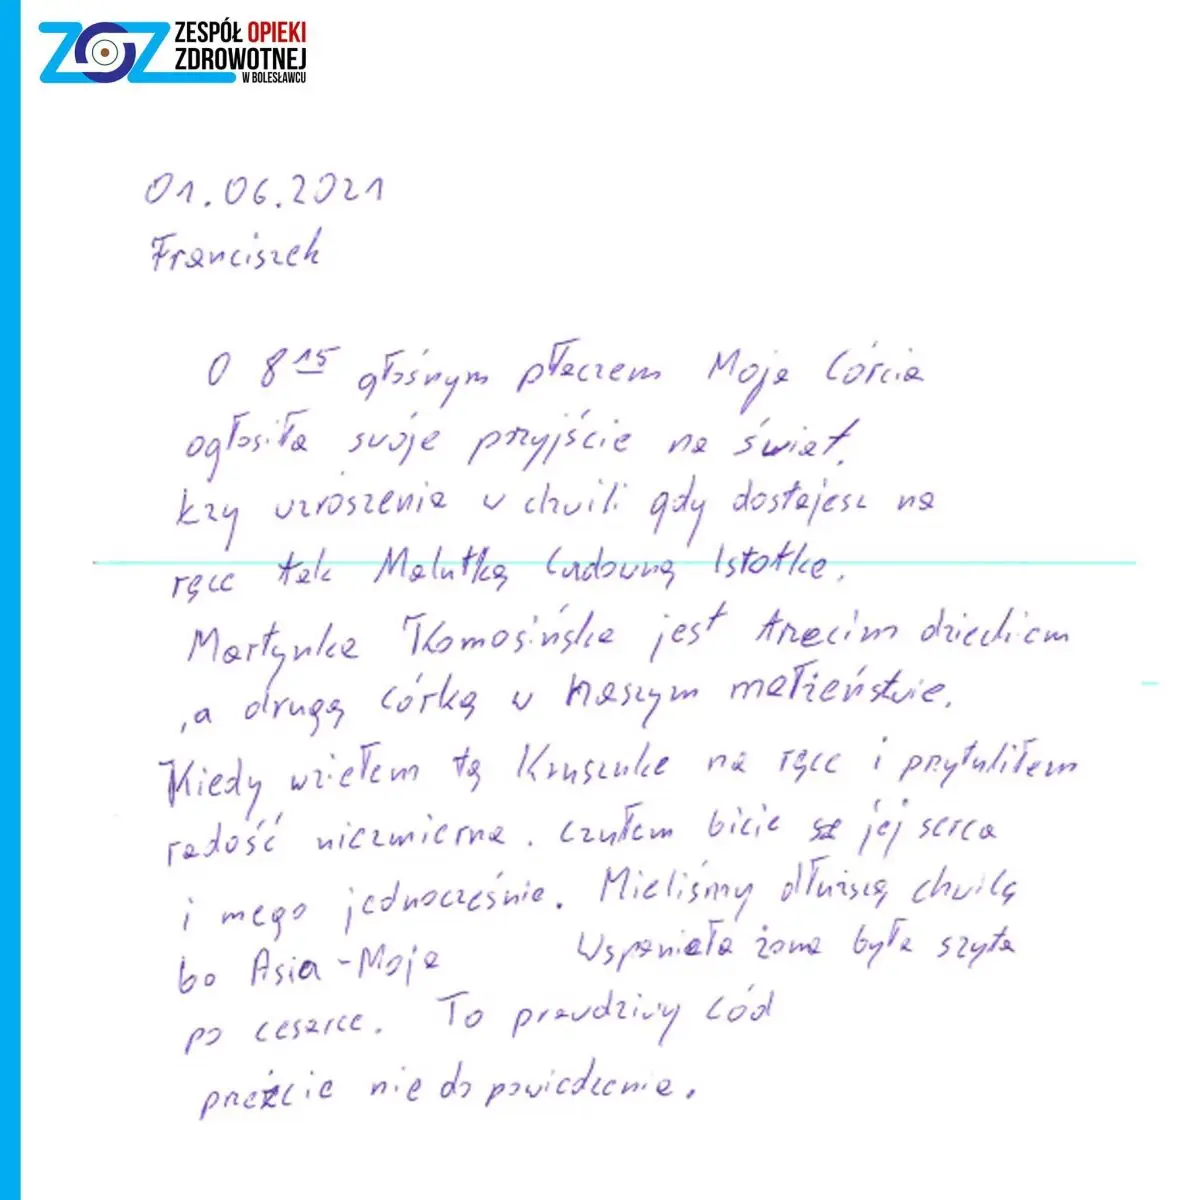 ZOZ ZESPÓŁ OPIEKI
ZDROWOTNEJ
W BOLESŁAWCU
01.06.2021
Franciszek
O 8 15 głośnym płaczem Moja Córcia
ogłosiła swoje przyjście na świat.
Łzy wzroszenia w chwili gdy dostajesz na
ręce tak Malutką Cudowną Istotkę.
Martynka Tkomosińska jest trzecim dzieckiem
, a drugą córką w Naszym małżeństwie.
Kiedy wziełem tą Kruszynke na ręce i przytuliłem
radość niezmierna. Czułem bicie jej serca
i mego jednocześnie. Mieliśmy dłuższą chwilę
bo Asia - Moja Wspaniała żona była szyta
po cesarce. To prawdziwy Cód
przeżcie nie do powiedzenia.